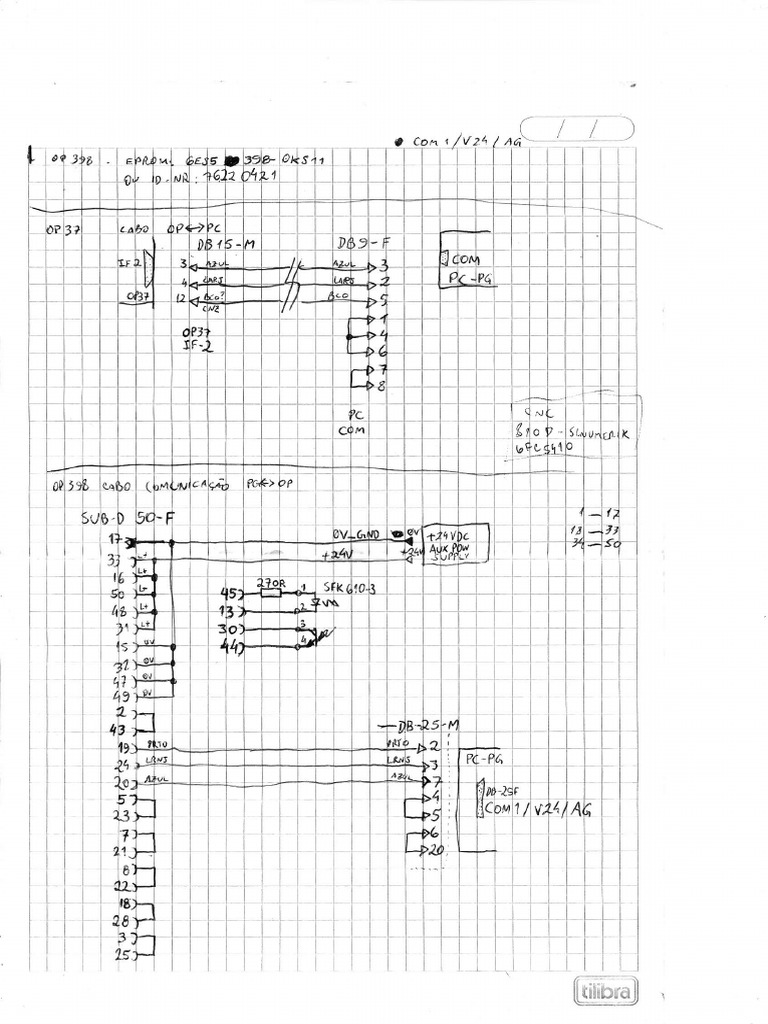 / /
COM 1 / V24 / AG
OP 398 . EPROM: 6ES5 398-0KS11
OU ID.NR: 7622 0421
OP37 CABO OP<->PC
DB15-M DB9-F
IF2
OP37
3 AZUL AZUL 3
4 LARJ LARJ 2
12 BCO? BCO 5
CNZ
1
4
6
7
8
OP37
IF-2
PC
COM
COM
PC-PG
CNC
810D-SINUMERIK
6FC5410
OP 398 CABO COMUNICAÇÃO PG<->OP
SUB-D 50-F
1 — 17
18 — 33
34 — 50
17 0V_GND 0V
33 L+ +24V +24V
+24VDC
AUX POW
SUPPLY
16 L+
50 L+
48 L+
31 L+
15 0V
32 0V
47 0V
49 0V
45 270R 1 SFK610-3
13 2
30 3
44 4
2
43
19 PRTO PRTO 2
24 LRNJ LRNJ 3
20 AZUL AZUL 7
DB-25-M
4
5
6
20
PC-PG
DB-25F
COM1/V24/AG
5
23
7
21
8
22
18
28
3
25
tilibra